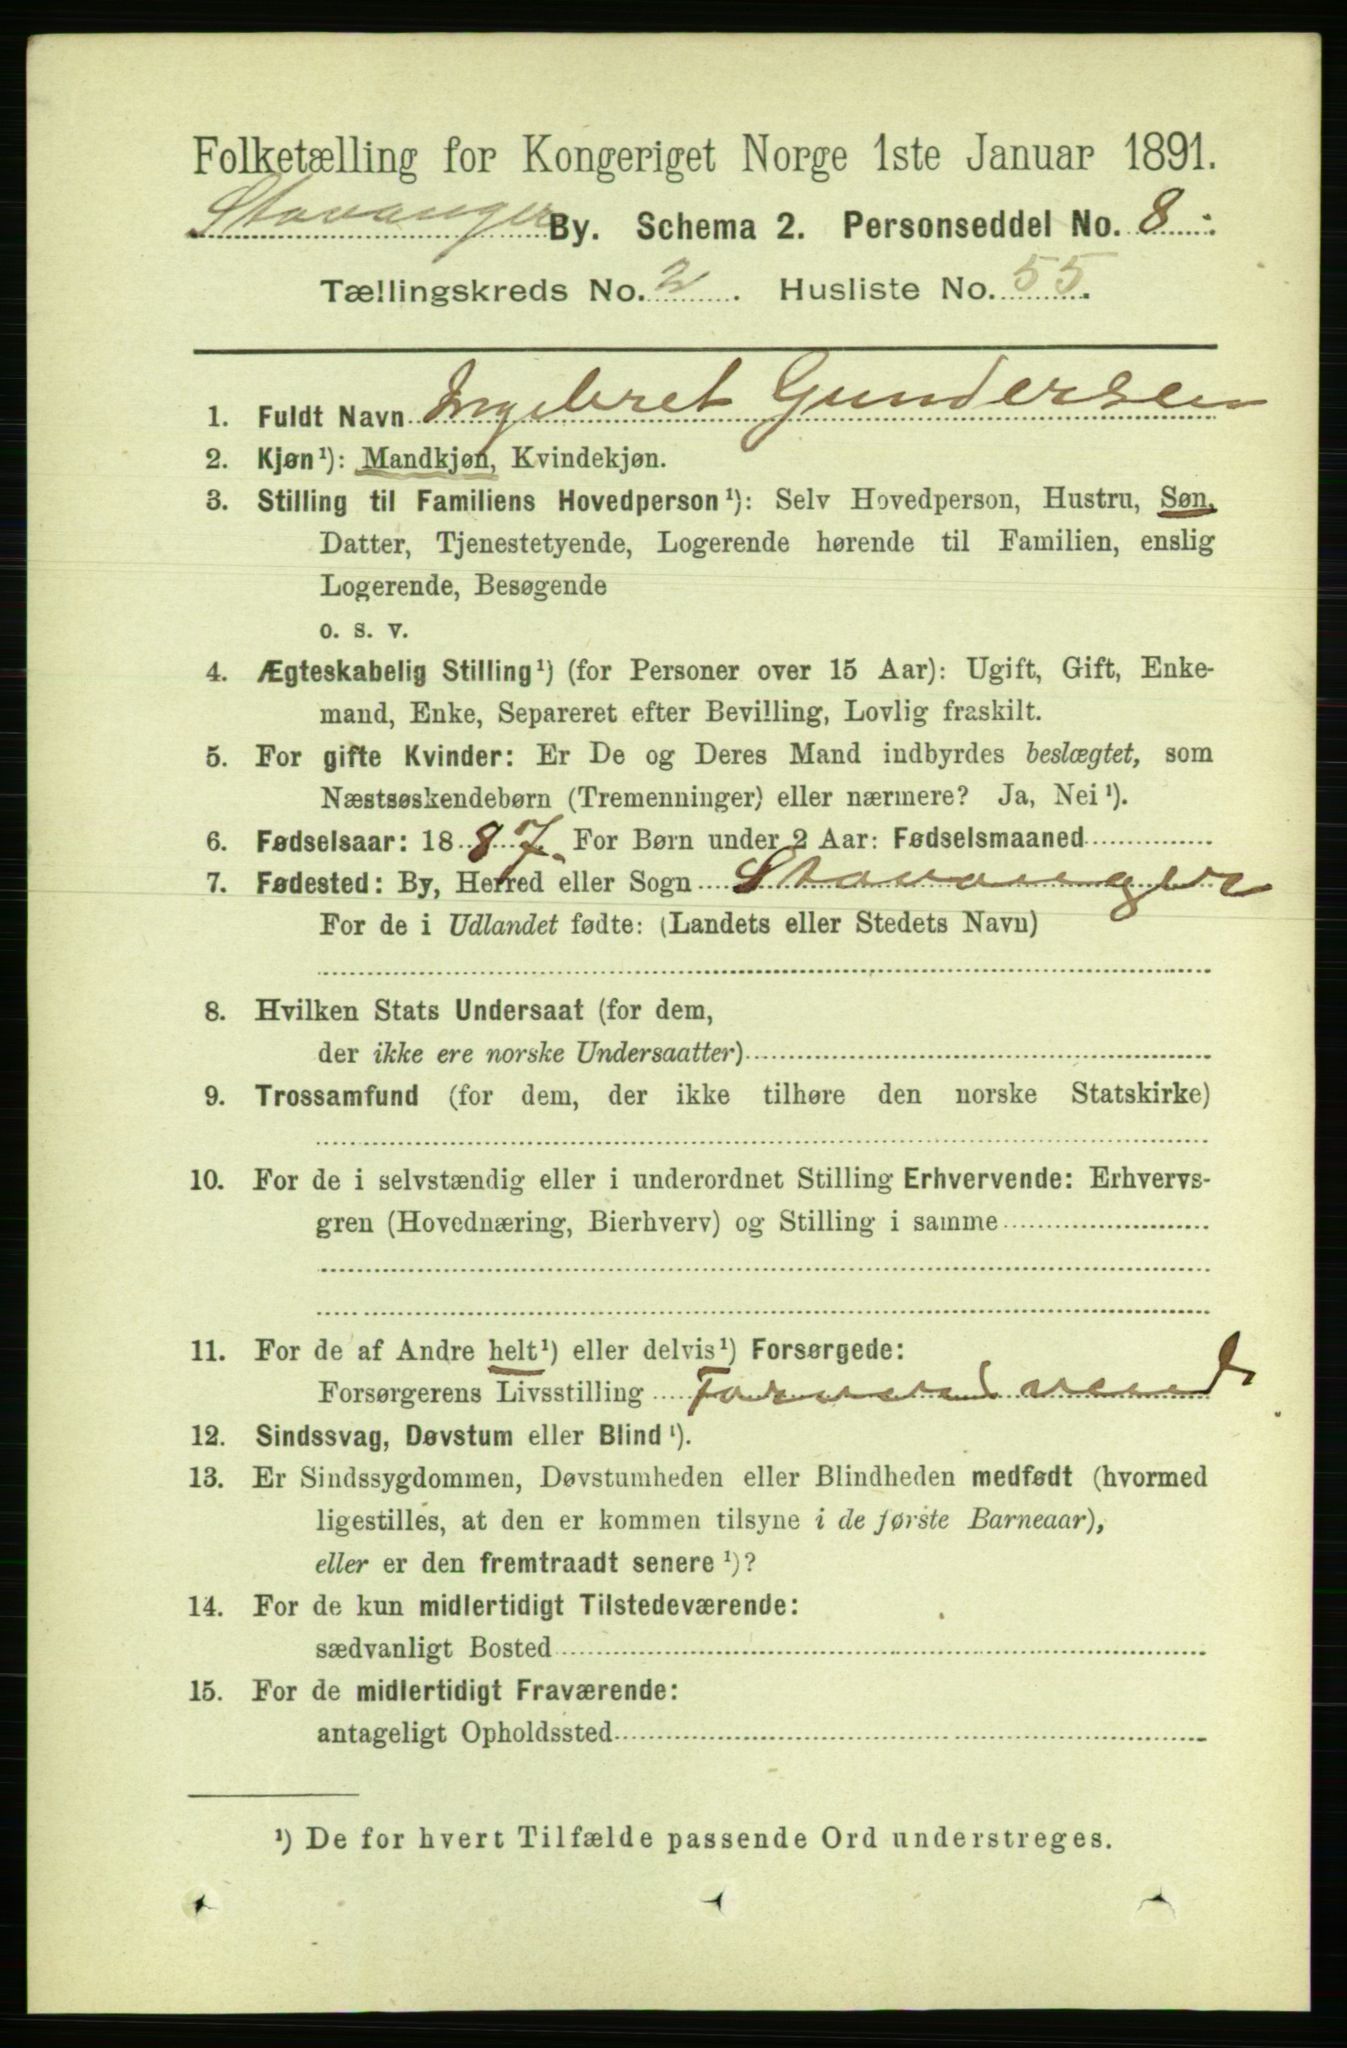 Folketælling for Kongeriget Norge 1ste Januar 1891.
Stavanger By. Schema 2. Personseddel No. 8.
Tællingskreds No. 2. Husliste No. 55.
1. Fuldt Navn Ingebret Gundersen
2. Kjøn¹): Mandkjøn, Kvindekjøn.
3. Stilling til Familiens Hovedperson¹): Selv Hovedperson, Hustru, Søn,
Datter, Tjenestetyende, Logerende hørende til Familien, enslig
Logerende, Besøgende
o. s. v.
4. Ægteskabelig Stilling¹) (for Personer over 15 Aar): Ugift, Gift, Enke-
mand, Enke, Separeret efter Bevilling, Lovlig fraskilt.
5. For gifte Kvinder: Er De og Deres Mand indbyrdes beslægtet, som
Næstsøskendebørn (Tremenninger) eller nærmere? Ja, Nei¹).
6. Fødselsaar: 1887. For Børn under 2 Aar: Fødselsmaaned
7. Fødested: By, Herred eller Sogn Stavanger
For de i Udlandet fødte: (Landets eller Stedets Navn)
8. Hvilken Stats Undersaat (for dem,
der ikke ere norske Undersaatter)
9. Trossamfund (for dem, der ikke tilhøre den norske Statskirke)
10. For de i selvstændig eller i underordnet Stilling Erhvervende: Erhvervs-
gren (Hovednæring, Bierhverv) og Stilling i samme
11. For de af Andre helt¹) eller delvis¹) Forsørgede:
Forsørgerens Livsstilling
12. Sindssvag, Døvstum eller Blind¹).
13. Er Sindssygdommen, Døvstumheden eller Blindheden medfødt (hvormed
ligestilles, at den er kommen tilsyne i de første Barneaar),
eller er den fremtraadt senere¹)?
14. For de kun midlertidigt Tilstedeværende:
sædvanligt Bosted
15. For de midlertidigt Fraværende:
antageligt Opholdssted
¹) De for hvert Tilfælde passende Ord understreges.